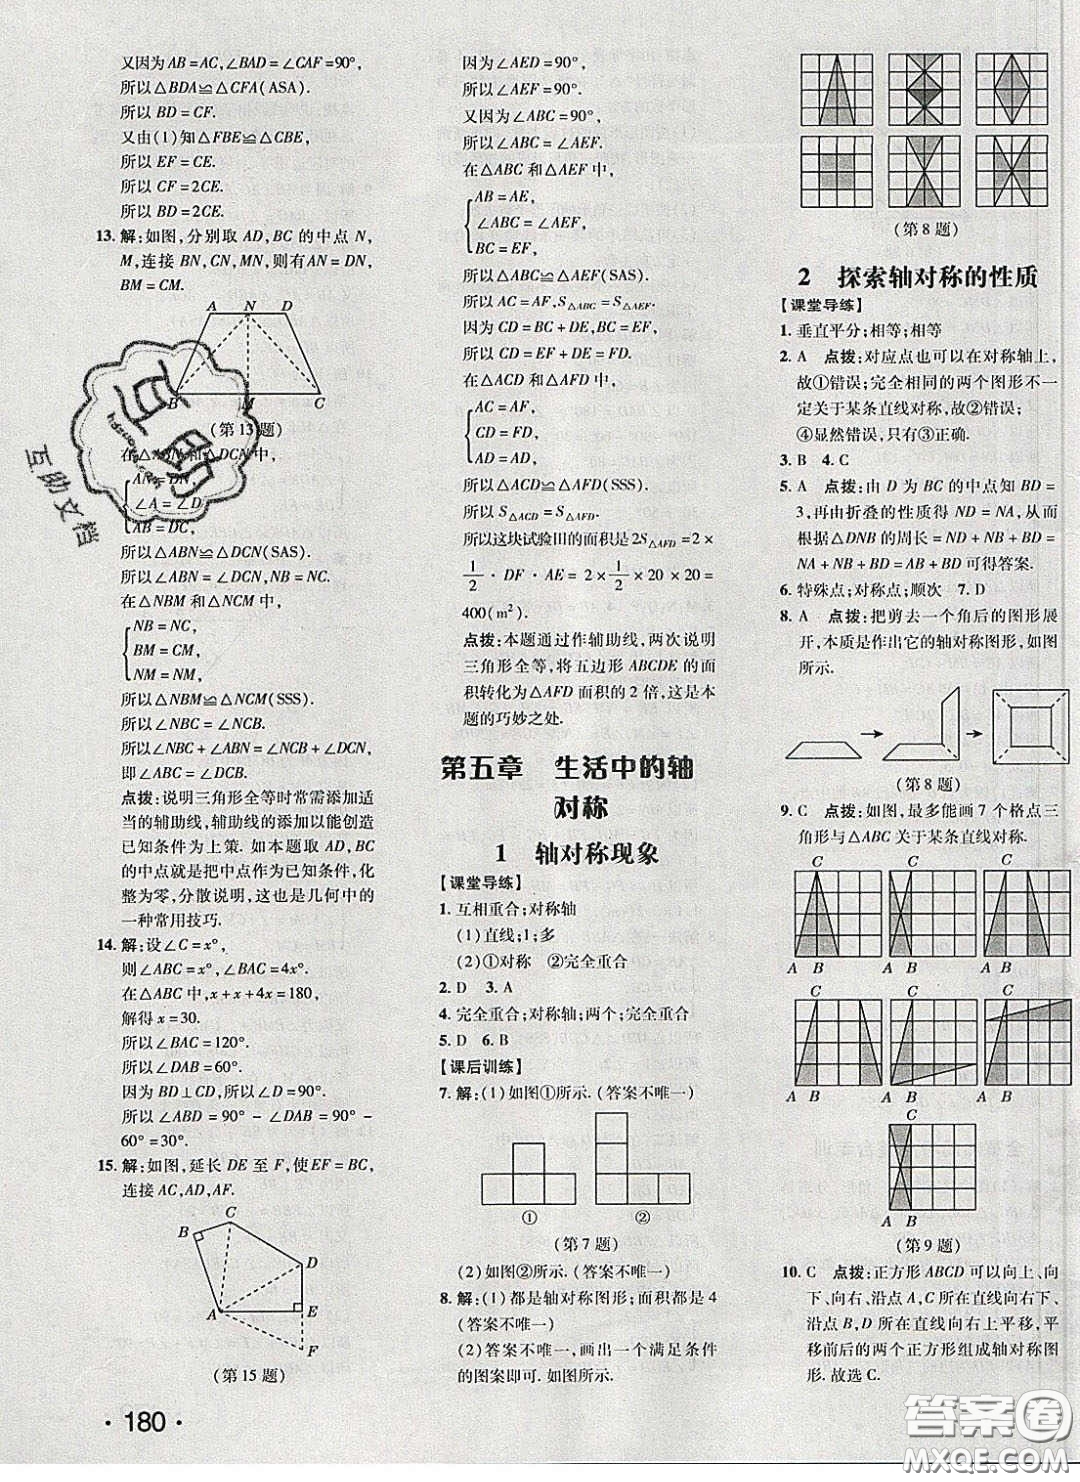 又因为AB=AC,∠BAD=∠CAF=90°,
所以△BDA≌△CFA(ASA).
所以BD=CF.
又由(1)知△FBE≌△CBE,
所以EF=CE.
所以CF=2CE.
所以BD=2CE.
13.解:如图,分别取AD,BC的中点N,
M,连接BN,CN,MN,则有AN=DN,
BM=CM.
A N D
B M C
(第13题)
在△ABN和△DCN中,
AN=DN,
∠A=∠D,
AB=DC,
所以△ABN≌△DCN(SAS).
在△NBM和△NCM中,
NB=NC,
BM=CM,
NM=NM,
所以△NBM≌△NCM(SSS).
所以∠NBC=∠NCB.
所以∠NBC+∠ABN=∠NCB+∠DCN,
即∠ABC=∠DCB.
点拨:说明三角形全等时常需添加适
当的辅助线,辅助线的添加以能创造
已知条件为上策.如本题取AD,BC
的中点就是把中点作为已知条件,化
整为零,分散说明,这也是几何中的
一种常用技巧.
14.解:设∠C=x°,
则∠ABC=x°,∠BAC=4x°.
在△ABC中,x+x+4x=180,
解得x=30.
所以∠BAC=120°.
所以∠DAB=60°.
因为BD⊥CD,所以∠BDA=90°.
所以∠ABD=90°-∠DAB=90°-
60°=30°.
15.解:如图,延长DE至F,使EF=BC,
连接AC,AD,AF.
C
B
D
A E
F
(第15题)
·180·
因为∠AED=90°,
所以∠AEF=90°.
又因为∠ABC=90°,
所以∠ABC=∠AEF.
在△ABC和△AEF中,
AB=AE,
∠ABC=∠AEF,
BC=EF,
所以△ABC≌△AEF(SAS).
所以AC=AF,S△ABC=S△AEF.
因为CD=BC+DE,BC=EF,
所以CD=EF+DE=FD.
在△ACD和△AFD中,
AC=AF,
CD=FD,
AD=AD,
所以△ACD≌△AFD(SSS).
所以S△ACD=S△AFD.
所以这块试验田的面积是2S△AFD=2×
1/2·DF·AE=2×1/2×20×20=
400(m²).
点拨:本题通过作辅助线,两次说明
三角形全等,将五边形ABCDE的面
积转化为△AFD面积的2倍,这是本
题的巧妙之处.
第五章 生活中的轴
对称
1 轴对称现象
【课堂导练】
1.互相重合;对称轴
(1)直线;1;多
(2)①对称 ②完全重合
2.D 3.A
4.完全重合;对称轴;两个;完全重合
5.D 6.B
【课后训练】
7.解:(1)如图①所示.(答案不唯一)
① ②
(第7题)
(2)如图②所示.(答案不唯一)
8.解:(1)都是轴对称图形;面积都是4
(答案不唯一)
(2)答案不唯一,画出一个满足条件
的图案即可.如图所示.
(第8题)
2 探索轴对称的性质
【课堂导练】
1.垂直平分;相等;相等
2.A 点拨:对应点也可以在对称轴上,
故①错误;完全相同的两个图形不一
定关于某条直线对称,故②错误;
④显然错误,只有③正确.
3.B 4.C
5.A 点拨:由D为BC的中点知BD=
3,再由折叠的性质得ND=NA,从而
根据△DNB的周长=ND+NB+BD=
NA+NB+BD=AB+BD可得答案.
6.特殊点;对称点;顺次 7.D
8.A 点拨:把剪去一个角后的图形展
开,本质是作出它的轴对称图形,如图
所示.
(第8题)
9.C 点拨:如图,最多能画7个格点三
角形与△ABC关于某条直线对称.
C C C
A B A B A B
C C C
A B A B A B
C
A B
(第9题)
10.C 点拨:正方形ABCD可以向上、向
下、向右、沿点A,C所在直线向右下、
沿点B,D所在直线向右上平移,平
移前后的两个正方形组成轴对称图
形.故选C.
互助文档
答案圈
MXQE.COM